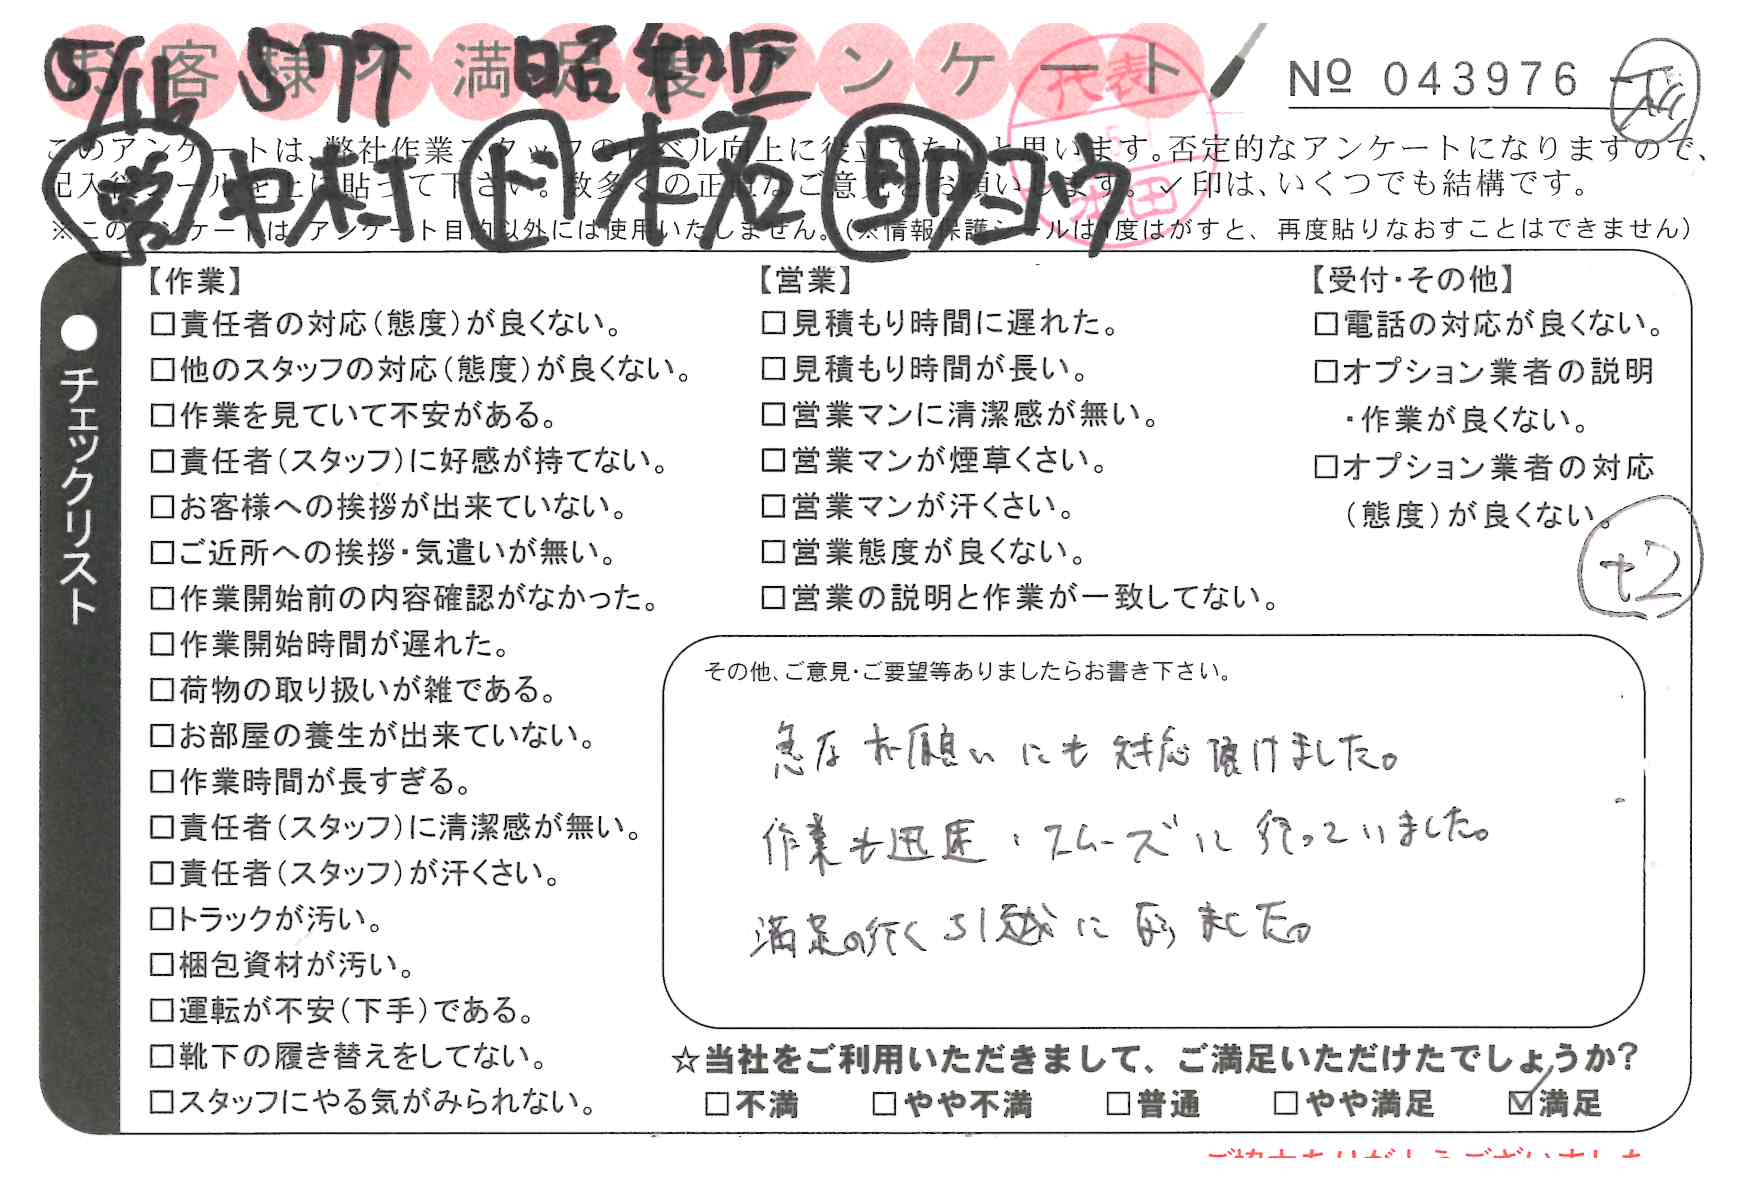 お客様不満足度アンケート
№ 043976
5/16 S77 昭和区
営 中村 ド 本石 助 コウ
代表
本田
このアンケートは、弊社作業スタッフのレベル向上に役立てたいと思います。否定的なアンケートになりますので、
記入後シールを上に貼って下さい。数多くの正直なご意見をお願いします。✓印は、いくつでも結構です。
※このアンケートは、アンケート目的以外には使用いたしません。(※情報保護シールは1度はがすと、再度貼りなおすことはできません)
●チェックリスト
【作業】
□責任者の対応(態度)が良くない。
□他のスタッフの対応(態度)が良くない。
□作業を見ていて不安がある。
□責任者(スタッフ)に好感が持てない。
□お客様への挨拶が出来ていない。
□ご近所への挨拶・気遣いが無い。
□作業開始前の内容確認がなかった。
□作業開始時間が遅れた。
□荷物の取り扱いが雑である。
□お部屋の養生が出来ていない。
□作業時間が長すぎる。
□責任者(スタッフ)に清潔感が無い。
□責任者(スタッフ)が汗くさい。
□トラックが汚い。
□梱包資材が汚い。
□運転が不安(下手)である。
□靴下の履き替えをしてない。
□スタッフにやる気がみられない。
【営業】
□見積もり時間に遅れた。
□見積もり時間が長い。
□営業マンに清潔感が無い。
□営業マンが煙草くさい。
□営業マンが汗くさい。
□営業態度が良くない。
□営業の説明と作業が一致してない。
【受付・その他】
□電話の対応が良くない。
□オプション業者の説明
・作業が良くない。
□オプション業者の対応
(態度)が良くない。
+2
その他、ご意見・ご要望等ありましたらお書き下さい。
急なお願いにも対応頂けました。
作業も迅速、スムーズに行っていました。
満足の行く引越になりました。
☆当社をご利用いただきまして、ご満足いただけたでしょうか?
□不満 □やや不満 □普通 □やや満足 ☑満足
ご協力ありがとうございました